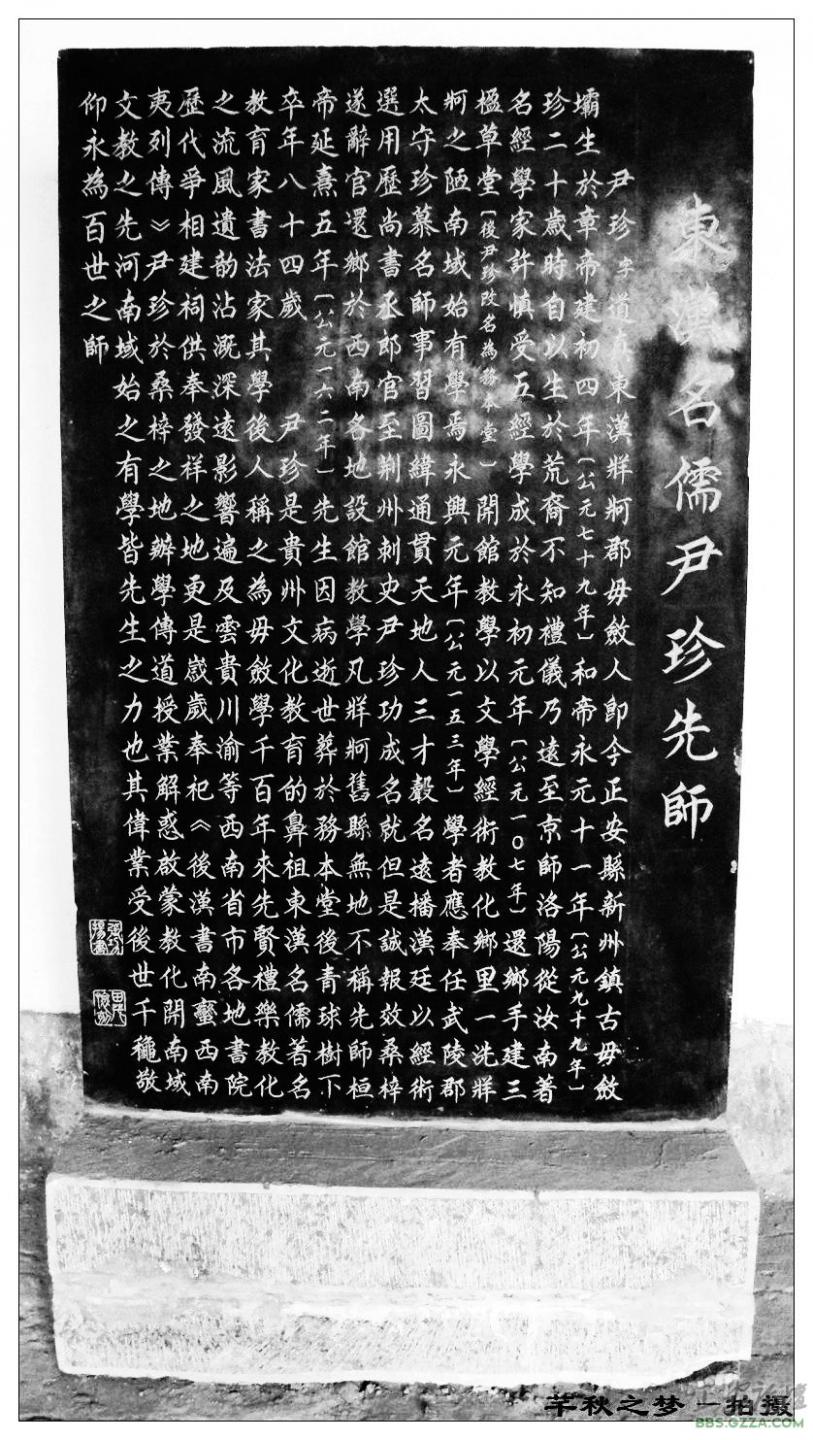 東漢名儒尹珍先師
尹珍字道真東漢牂牁郡毋斂人即今正安縣新州鎮古毋斂
壩生於章帝建初四年〔公元七十九年〕和帝永元十一年〔公元九十九年〕
珍二十歲時自以生於荒裔不知禮儀乃遠至京師洛陽從汝南著
名經學家許慎受五經學成於永初元年〔公元一0七年〕還鄉手建三
楹草堂〔後尹珍改名為務本堂〕開館教學以文學經術教化鄉里一洗牂
牁之陋南域始有學焉永興元年〔公元一五三年〕學者應奉任武陵郡
太守珍慕名師事習圖緯通貫天地人三才轂名遠播漢廷以經術
選用歷尚書丞郎官至荆州刺史尹珍功成名就但是誠報效桑梓
遂辭官還鄉於西南各地設館教學凡牂牁舊縣無地不稱先師桓
帝延熹五年〔公元一六二年〕先生因病逝世葬於務本堂後青球樹下
卒年八十四歲 尹珍是貴州文化教育的鼻祖東漢名儒著名
教育家書法家其學後人稱之為毋斂學千百年來先賢禮樂教化
之流風遺韵沾溉深遠影響遍及雲貴川渝等西南省市各地書院
歷代爭相建祠供奉發祥之地更是歲歲奉祀《後漢書南蠻西南
夷列傳》尹珍於桑梓之地辦學傳道授業解惑啟蒙教化開南域
文教之先河南域始之有學皆先生之力也其偉業受後世千穐敬
仰永為百世之師
芊秋之梦一拍摄
BBS.GZZA.COM